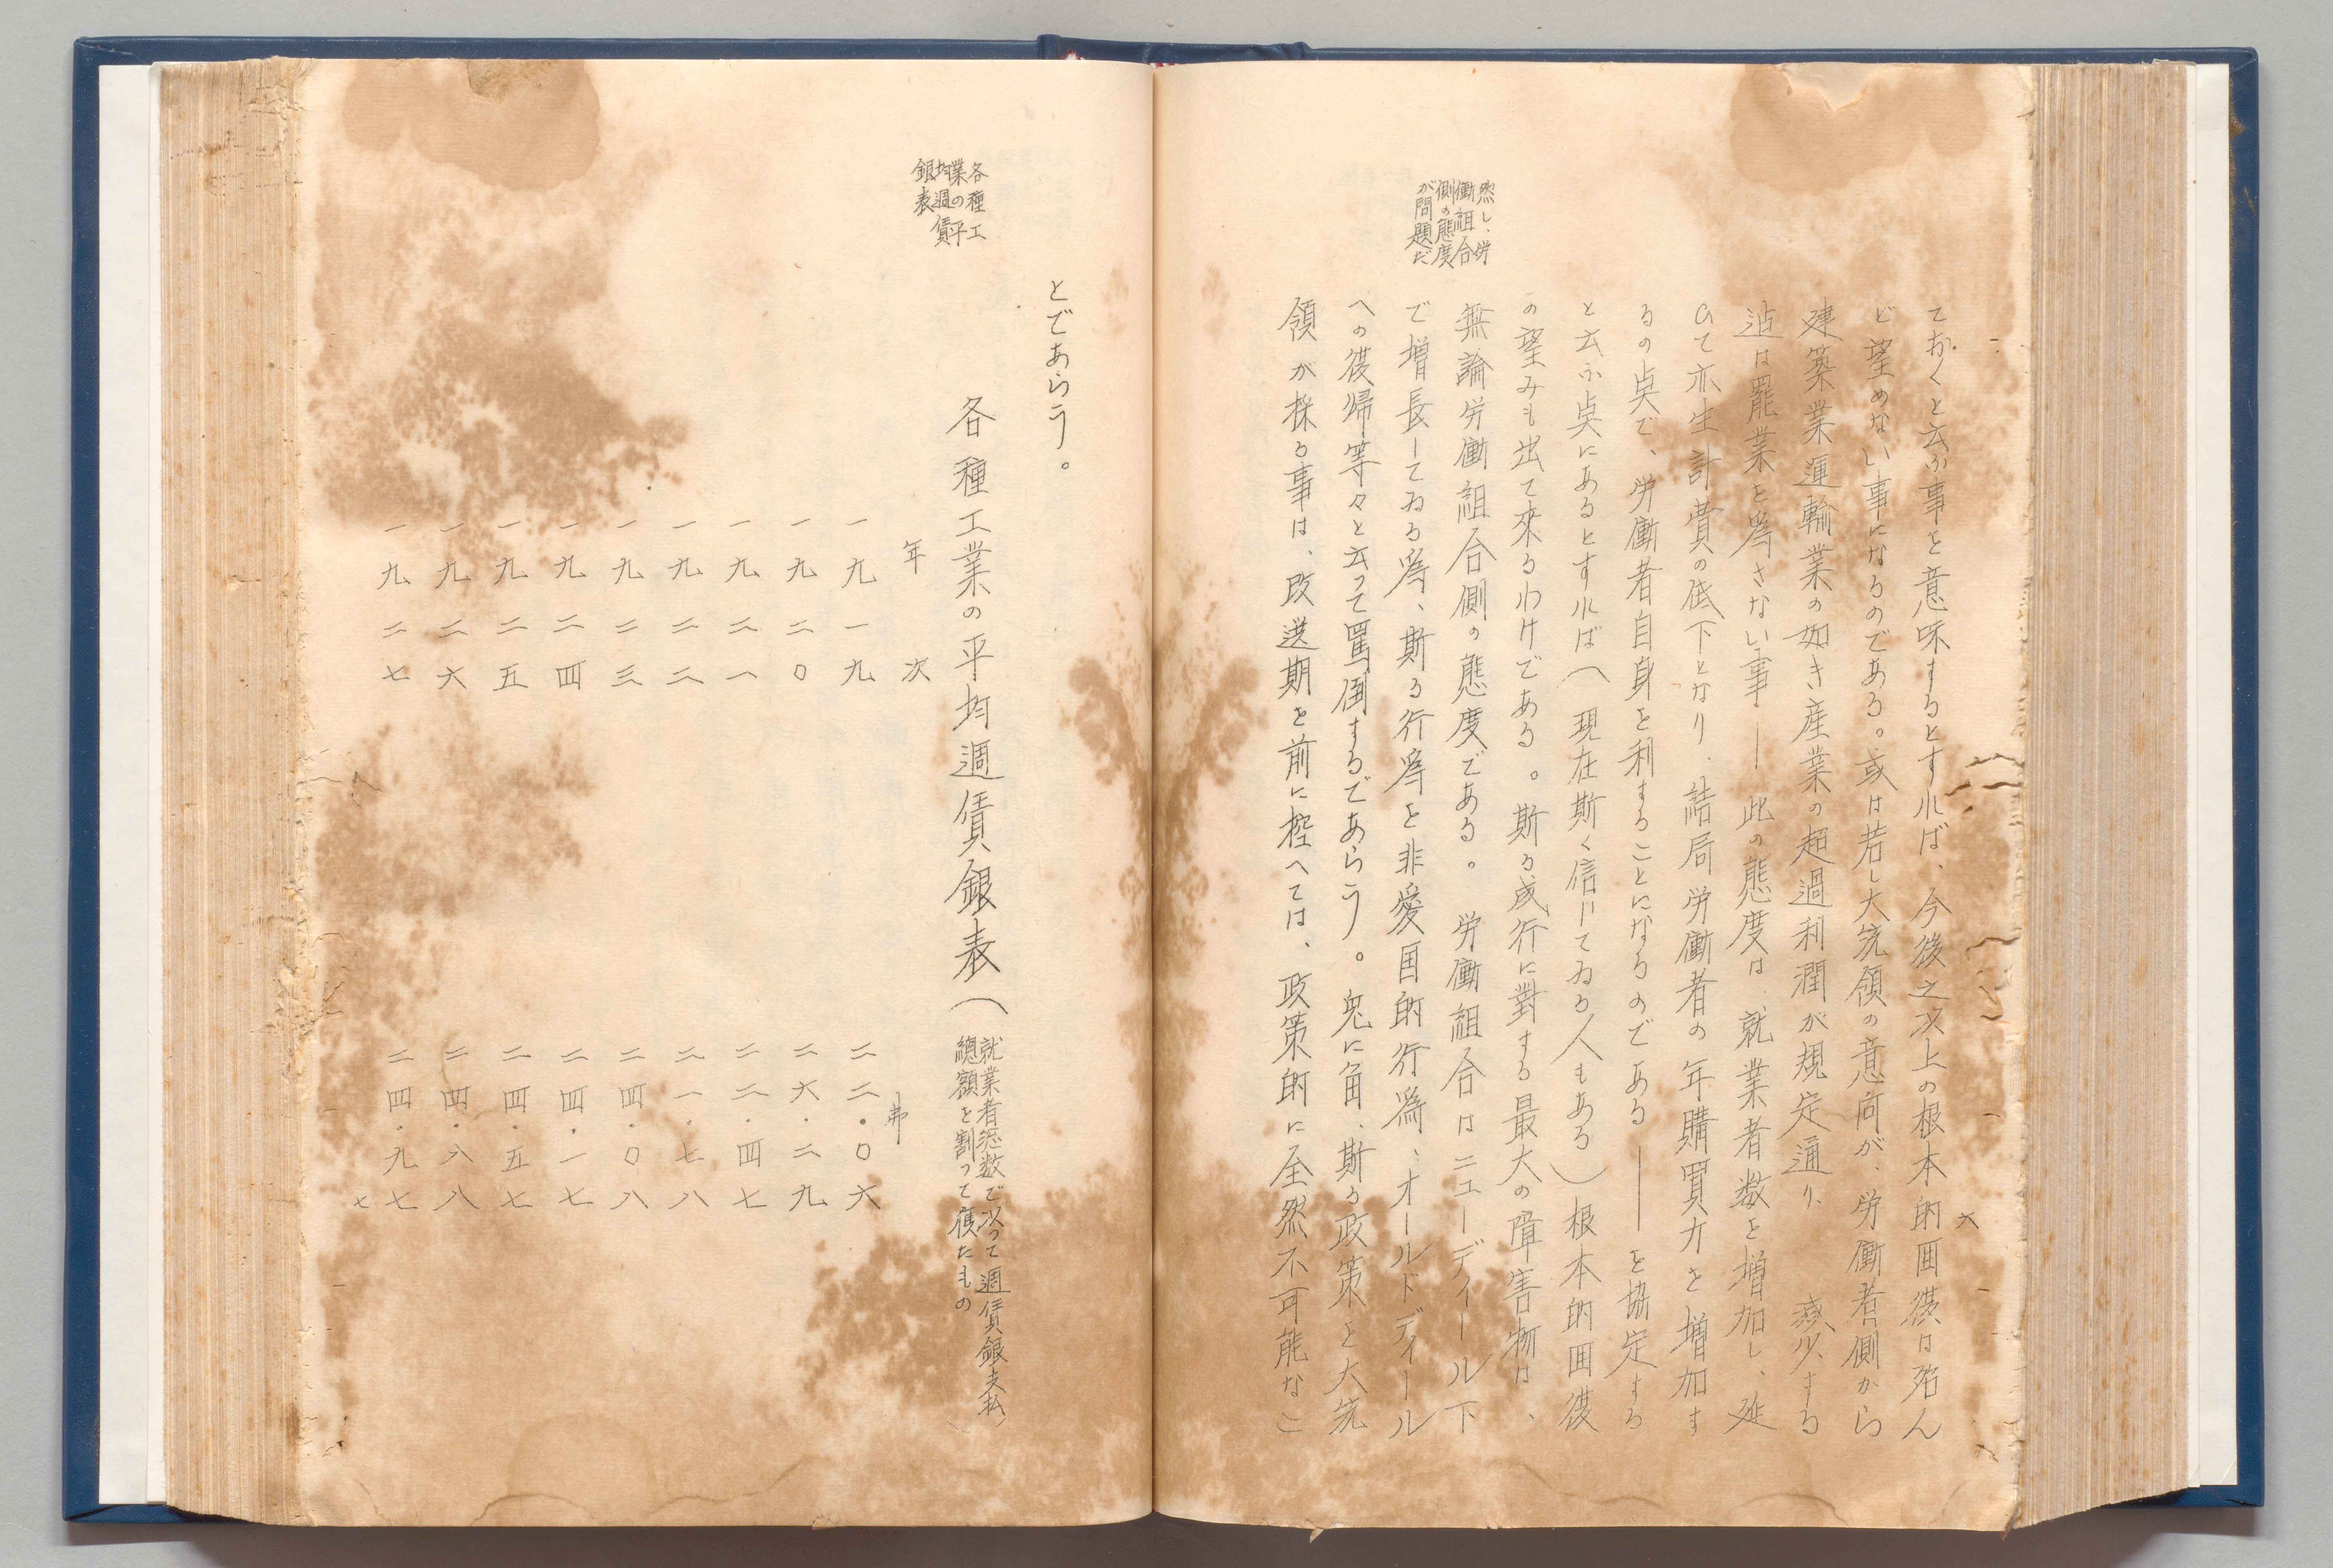 然し、労
働組合
側の態度
が問題だ
ておくと云ふ事を意味するとすれば、今後之以上の根本的囬復は殆ん
ど望めない事になるのである。或は若し大統領の意向が、労働者側から
建築業運輸業の如き産業の超過利潤が規定通り、減少する
迠は罷業を爲さない事―此の態度は、就業者数を増加し、延
ひて亦生計費の低下となり、結局労働者の年購買力を増加す
るの点で、労働者自身を利することになるのである――を協定する
と云ふ点にあるとすれば（現在斯く信じてゐる人もある）根本的囬復
の望みも出て来るわけである。斯る成行に對する最大の障害物は、
無論労働組合側の態度である。労働組合はニューディール下
で増長してゐる爲、斯る行爲を非愛国的行爲、オールドディール
への復帰等々と云って罵倒するであらう。兎に角、斯る政策を大統
領が採る事は、改選期を前に控へては、政策的に全然不可能なこ
六
とであらう。
各種工
業の平
均週賃
銀表
各種工業の平均週賃銀表（就業者総数で以って週賃銀支払
總額を割って獲たもの）
年次 弗
一九一九 二二・〇六
一九二〇 二六・二九
一九二一 二二・四七
一九二二 二一・七八
一九二三 二四・〇八
一九二四 二四・一七
一九二五 二四・五七
一九二六 二四・八八
一九二七 二四・九七
七